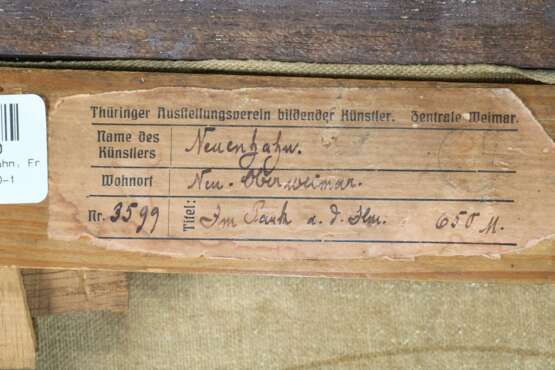 Thüringer Ausstellungsverein bildender Künstler. Zentrale Weimar.
Name des Künstlers Neuenhahn.
Wohnort Neu-Oberweimar.
Nr. 3599 Titel: Im Park a. d. Ilm. 650 M.
0
ahn, Fr
0-1